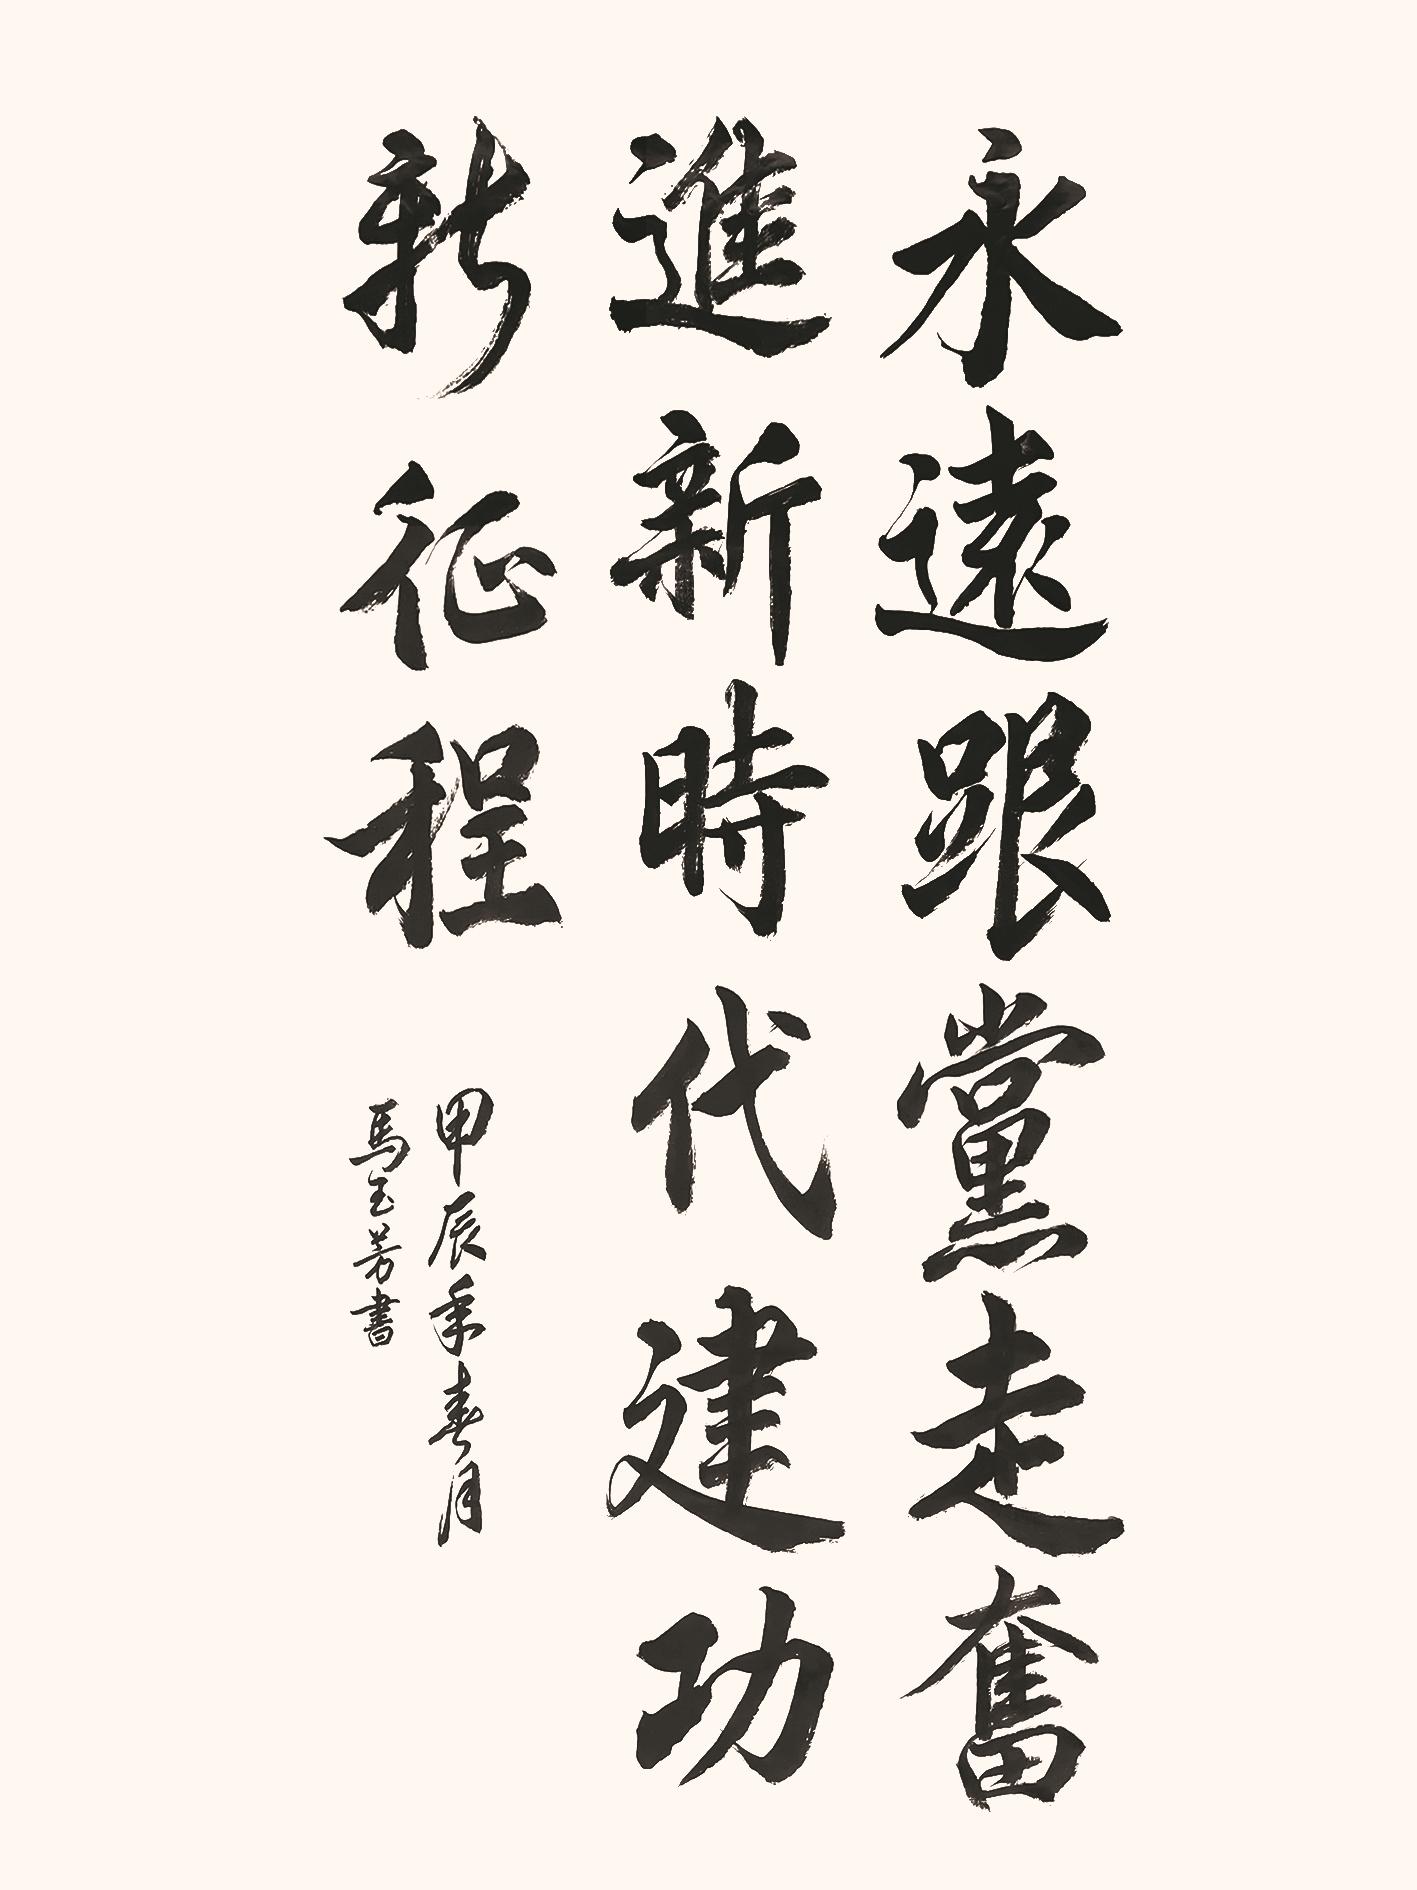 永遠跟黨走奮
進新時代建功
新征程
甲辰年春月
馬玉芳書